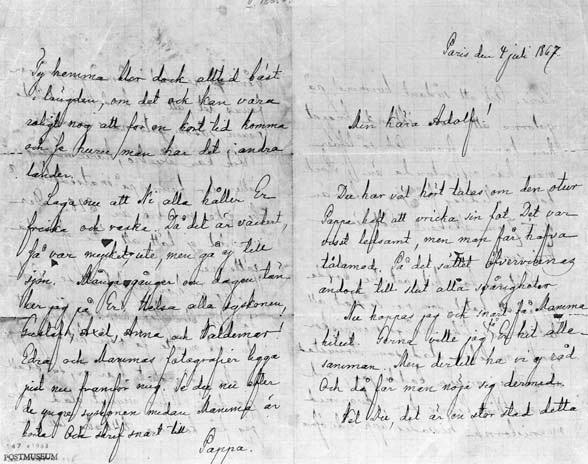 Paris den 4 juli 1867.
Min kära Adolf!
Du har väl hört talas om den otur
Pappa haft att vricka sin fot. Det var
visst ledsamt, men man får hafva
tålamod. På det sättet öfvervinnes
ändock till slut alla svårigheter
Nu hoppas jag ock snart få Mamma
hitest. Gerna ville jag Er hit alle-
samman. Men dertill ha vi ej råd
Och då får man nöja sig dermed.
Vet Du, det är en stor stad detta
Ty hemma blir dock alltid bäst
i längden, om det ock kan vara
roligt nog att för en kort tid komma
och se huru man har det i andra
länder.
Laga nu att Ni alla håller Er
friska och raska. Då det är vackert,
så var mycket ute, men gå ej till
sjön. Många gånger om dagen tän-
ker jag på Er. Helsa alla syskonen,
Gustaf, Axel, Anna, och Valdemar.
Edra och Mammas fotografier ligga
just nu framför mig. Se dig nu efter
de yngre syskonen medan Mamma är
borta. Och skrif snart till
Pappa.
POSTMUSEUM